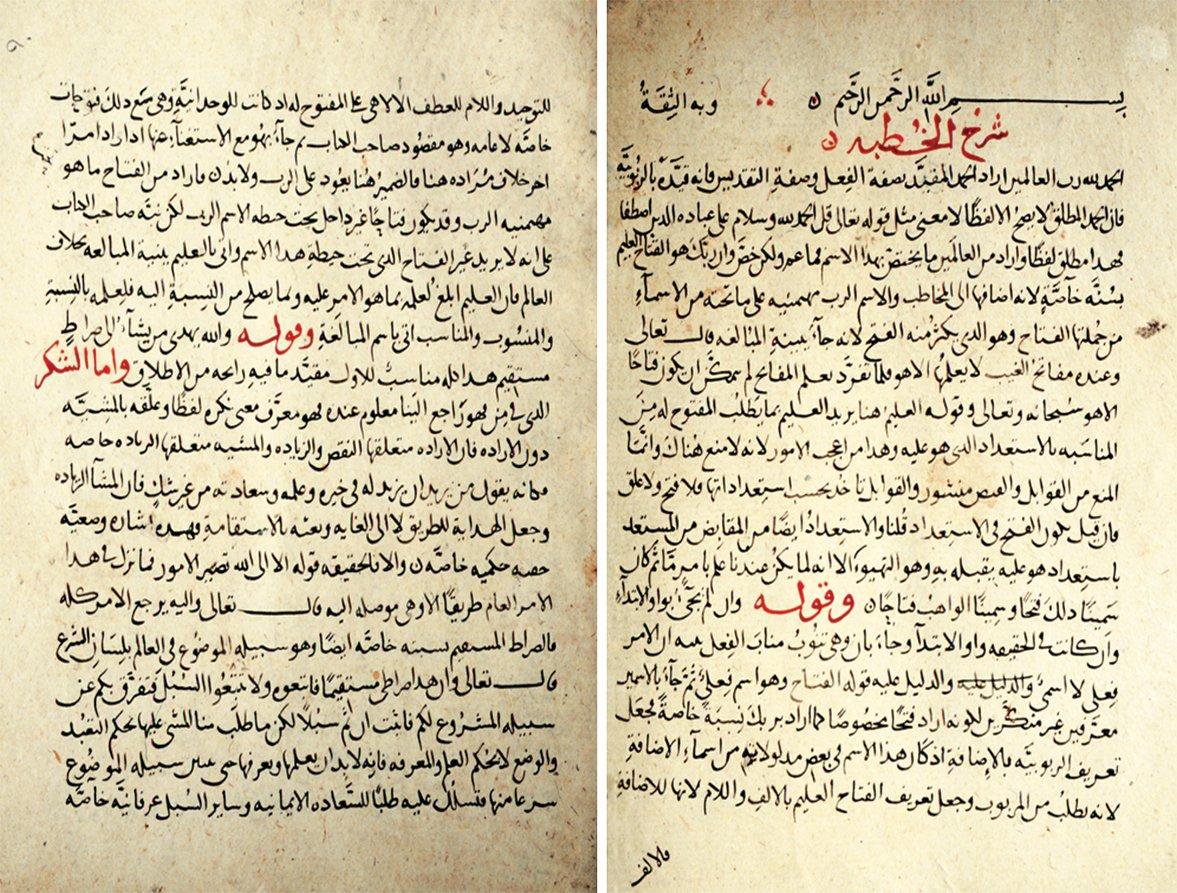 بسم الله الرحمن الرحيم وبه الثقة
شرح الخطبه
الحمد لله رب العالمين اراد الحمد المقيد بصفة الفعل وصفة التقديس فانه قيده بالربوبية
فان الحمد المطلق لا يصح الا لفظا لا معنى مثل قوله تعالى قل الحمد لله وسلام على عباده الذين اصطفا
فهدا مطلق لفظا واراد من العالمين ما يختص بهدا الاسم فما عم ولكن خص وان ربك هو الفتاح العليم
خاصة لانه اضافها الى المخاطب والاسم الرب مهيمنيه على ما تحته من الاسمآء
من جملتها الفتاح وهو الدي يكثر منه الفتح لانه جآء ببنية المبالغه قال تعالى
وعنده مفاتح الغيب لا يعلمها الا هو فلما تفرد بعلم المفاتح لم يتمكن ان يكون فتاحا
الا هو سبحانه وتعالى وقوله العليم هنا يريد العليم بما يطلب المفتوح له من
المناسبه بالاستعداد الدي هو عليه وهدا من اعجب الامور لانه لا منع هناك وانما
المنع من القوابل والفيض منشور والقوابل تاخد بحسب استعداداتها فلا فتح ولا غلق
فان قيل يكون الفتح في الاستعداد قلنا والاستعداد ايضا من المقابض من المستعد
باستعداد هو عليه يقبله به وهو التهيوء الا انه لما لم يكن عندنا علم بامر ما ثم كان
سمينا دلك فتحا وسمينا الواهب فتاحا وقوله وان لم يجيء بواو الابتدآء
وان كانت في الحقيقه واو الابتدآ وجآء بان وهي تنوب مناب الفعل فان الامر
فعلي لا اسمي والدليل عليه والدليل عليه قوله الفتاح وهو اسم فعلي ثم جآء بالاسمين
معرفين غير منكرين لكونه اراد فتحا مخصوصا كما اراد بربك نسبة خاصة فجعل
تعريف الربوبيه بالاضافة اذ كان هدا الاسم في بعض مدلولاته من اسمآء الاضافة
لانه يطلب من المربوب وجعل تعريف الفتاح العليم بالالف واللام لانها للاضافة
فالالف
للتوحيد واللام للعطف الالاهي على المفتوح له اد كانت للوحدانية وهي مع دلك فتوحات
خاصة لا عامه وهو مقصود صاحب الكتاب ثم جآء بهو مع الاستغنآء عنها ادا اراد امرا
اخر خلاف مراده هنا فالضمير هنا يعود على الرب ولا بد فاراد من الفتاح ما هو
مهيمنيه الرب وقد يكون فتاحا غير داخل تحت حيطه الاسم الرب لكن نبه صاحب الكتاب
على انه لا يريد غير الفتاح الدي تحت حيطة هدا الاسم واتى بالعليم ببنية المبالغه بخلاف
العالم فان العليم ابلغ لعلمه بما هو الامر عليه وبما يصلح من النسبة اليه فلعلمه بالنسبة
والمنسوب والمناسب اتى باسم المبالغة وقوله والله يهدى من يشآء الى صراط
مستقيم هدا كله مناسب للاول مقيد ما فيه رايحه من الاطلاق واما الشكر
الدي في من فهو راجع الينا معلوم عنده فهو معرف معنى نكره لفظا وعلقه بالمشية
دون الاراده فان الاراده متعلقها النقص والزياده والمشيه متعلقها الزياده خاصه
فكانه يقول من يريد ان يزيد له في خيره وعلمه وسعادته من غير شك فان المشآ الزياده
وجعل الهداية للطريق لا الى الغايه ونعته بالاستقامة وهده اشاره وضعية
حصه حكميه خاصة والا فالحقيقه قوله الا الى الله تصير الامور فما نزل في هدا
الامر العام طريقا الا وهي موصله اليه قال تعالى واليه يرجع الامر كله
فالصراط المستقيم نسبته خاصة ايضا وهو سبيله الموضوع في العالم بلسان الشرع
قال تعالى وان هدا صراطي مستقيما فاتبعوه ولا تتبعوا السبل فتفرق بكم عن
سبيله المشروع لكم فاثبت ان ثم سبلا لكن ما طلب منا المشى عليها بحكم التعبد
والوضع لا بحكم العلم والمعرفه فانه لا بد ان يعلمها ويعرفها حتى سبيله الموضوع
شرعا منها فتسلك عليه طلبا للسعاده الايمانيه وساير السبل عرفانية خاصة